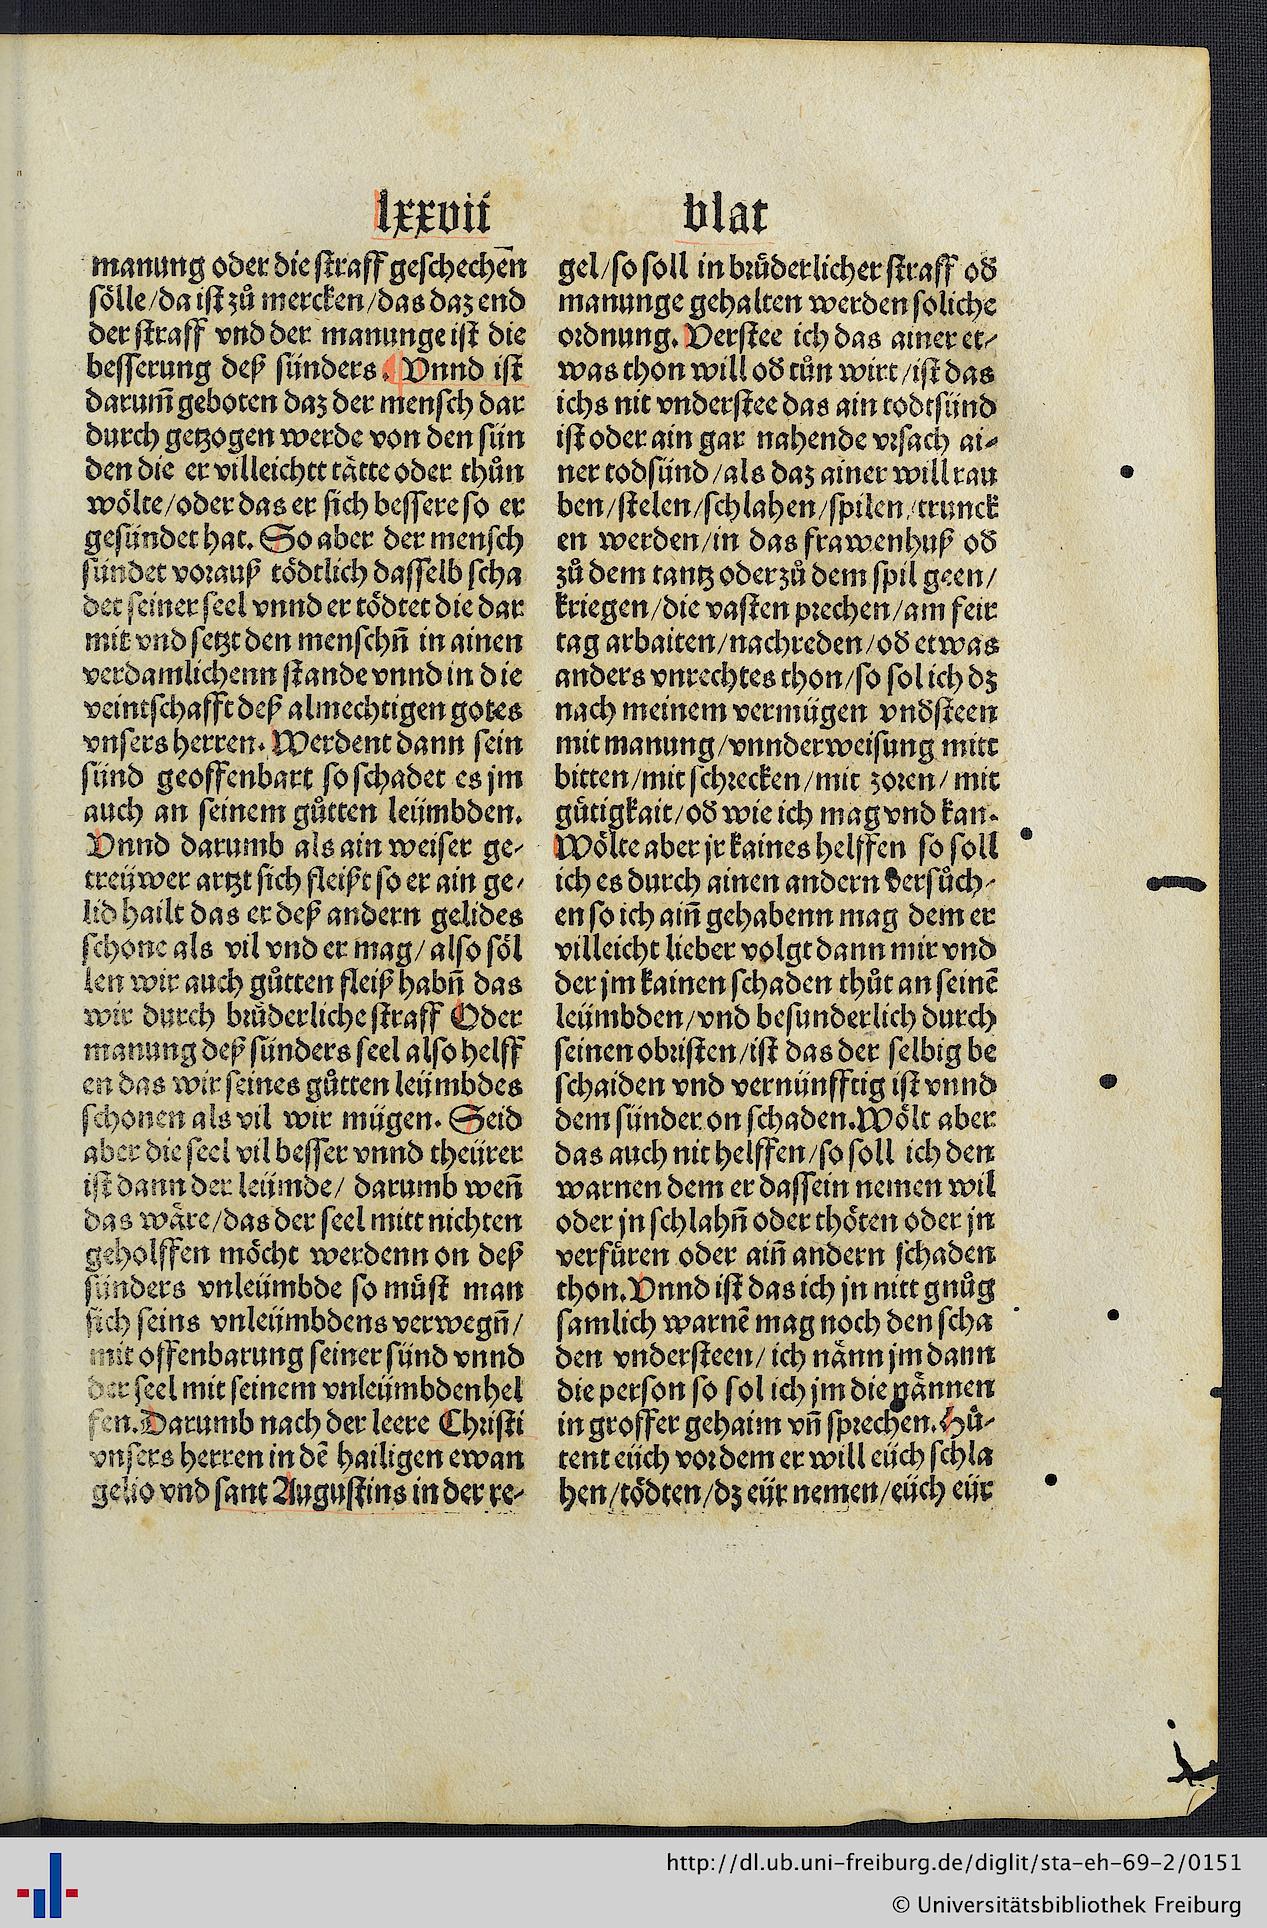 lxxvii blat
manung oder die straff geschechen̄
sölle/da ist zů mercken/das daz end
der straff vnd der manunge ist die
besserung deß sünders. Vnnd ist
darum̄ geboten daz der mensch dar
durch getzogen werde von den sün
den die er villeichtt tätte oder thůn
wölte/oder das er sich bessere so er
gesündet hat. So aber der mensch
sündet vorauß tödtlich dasselb scha
det seiner seel vnnd er tödtet die dar
mit vnd setzt den menschn̄ in ainen
verdamlichenn stande vnnd in die
veintschafft deß almechtigen gotes
vnsers herren. Werdent dann sein
sünd geoffenbart so schadet es jm
auch an seinem gůtten leümbden.
Vnnd darumb als ain weiser ge⸗
treüwer artzt sich fleißt so er ain ge⸗
lid hailt das er deß andern gelides
schone als vil vnd er mag/also söl
len wir auch gůtten fleiß habn̄ das
wir durch brüderliche straff Oder
manung deß sünders seel also helff
en das wir seines gůtten leümbdes
schonen als vil wir mügen. Seid
aber die seel vil besser vnnd theürer
ist dann der leümde/ darumb wen̄
das wäre/das der seel mitt nichten
geholffen möcht werdenn on deß
sünders vnleümbde so můst man
sich seins vnleümbdens verwegn̄/
mit offenbarung seiner sünd vnnd
der seel mit seinem vnleümbden hel
fen. Darumb nach der leere Christi
vnsers herren in dē hailigen ewan
gelio vnd sant Augustins in der re⸗
gel/so soll in brüderlicher straff od̄
manunge gehalten werden soliche
ordnung. Verstee ich das ainer et⸗
was thon will od̄ tůn wirt/ist das
ichs nit vnderstee das ain todtsünd
ist oder ain gar nahende vrsach ai⸗
ner todsünd/als daz ainer will rau
ben/stelen/schlahen/spilen/trunck
en werden/in das frawenhuß od̄
zů dem tantz oder zů dem spil geen/
kriegen/die vasten prechen/am feir
tag arbaiten/nachreden/od̄ etwas
anders vnrechtes thon/so sol ich dz
nach meinem vermügen vnd̄steen
mit manung/vnnderweisung mitt
bitten/mit schrecken/mit zoren/mit
gütigkait/od̄ wie ich mag vnd kan.
Wölte aber jr kaines helffen so soll
ich es durch ainen andern versůch⸗
en so ich ain̄ gehabenn mag dem er
villeicht lieber volgt dann mir vnd
der jm kainen schaden thůt an seinē
leümbden/vnd besunderlich durch
seinen obristen/ist das der selbig be
schaiden vnd vernünfftig ist vnnd
dem sünder on schaden. Wölt aber
das auch nit helffen/so soll ich den
warnen dem er das sein nemen wil
oder jn schlahn̄ oder thöten oder jn
verfüren oder ain̄ andern schaden
thon. Vnnd ist das ich jn nitt gnůg
samlich warnē mag noch den scha
den vndersteen/ich nänn jm dann
die person so sol ich jm die nännen
in grosser gehaim vn̄ sprechen. Hü⸗
tent eüch vor dem er will eüch schla
hen/tödten/dz eür nemen/eüch eür
http://dl.ub.uni-freiburg.de/diglit/sta-eh-69-2/0151
© Universitätsbibliothek Freiburg